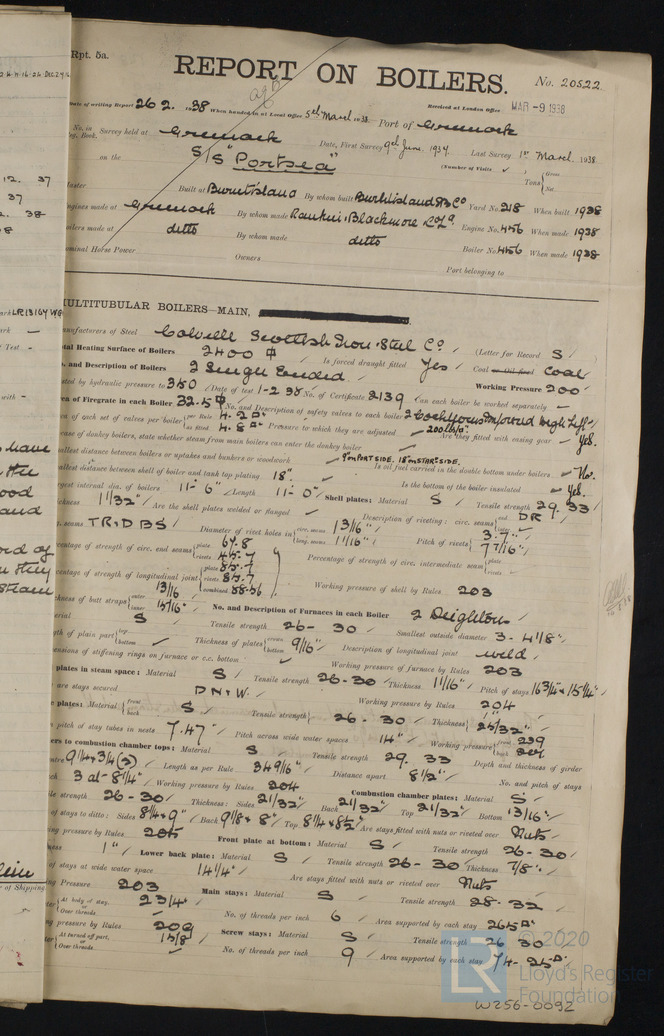 Rpt. 5a.
REPORT ON BOILERS.
No. 20522
Date of writing Report 26 2. 1938 When handed in at Local Office 5th March 1938 Port of Greenock
Received at London Office MAR -9 1938
No. in Reg. Book. Survey held at Greenock Date, First Survey 9th June. 1937 Last Survey 1st March. 1938
on the S/S "Portsea" (Number of Visits ✓) Tons { Gross Net
Master Built at Burntisland By whom built Burntisland SB Co Yard No. 218 When built 1938
Engines made at Greenock By whom made Rankin & Blackmore Ld Engine No. 456 When made 1938
Boilers made at ditto By whom made ditto Boiler No. 456 When made 1938
Nominal Horse Power Owners Port belonging to
MULTITUBULAR BOILERS—MAIN,
Manufacturers of Steel Colville Scottish Iron & Steel Co. (Letter for Record S)
Total Heating Surface of Boilers 2400 Is forced draught fitted Yes Coal or Oil fuel Coal
No. and Description of Boilers 2 Single Ended Working Pressure 200
Tested by hydraulic pressure to 350 Date of test 1-2 38 No. of Certificate 2139 Can each boiler be worked separately
Area of Firegrate in each Boiler 32.5 No. and Description of safety valves to each boiler 2 Cockburns Improved High Lift
Area of each set of valves per boiler { per Rule 4.2 as fitted 4.8 Pressure to which they are adjusted 200 lbs Are they fitted with easing gear Yes.
In case of donkey boilers, state whether steam from main boilers can enter the donkey boiler
Smallest distance between boilers or uptakes and bunkers or woodwork 9" ON PORT SIDE. 18" ON STARD SIDE. Is oil fuel carried in the double bottom under boilers No.
Smallest distance between shell of boiler and tank top plating 18" Is the bottom of the boiler insulated Yes.
Largest internal dia. of boilers 11'- 6" Length 11'- 0" Shell plates: Material S Tensile strength 29. 33
Thickness 1 1/32" Are the shell plates welded or flanged Description of riveting: circ. seams { end DR inter.
long. seams TR.DBS Diameter of rivet holes in { circ. seams 1 3/16" long. seams 1 1/16" Pitch of rivets { 3.7" 7 7/16"
Percentage of strength of circ. end seams { plate 67.8 rivets 45.7 Percentage of strength of circ. intermediate seam { plate rivets
Percentage of strength of longitudinal joint { plate 85.7 rivets 87.7 combined 88.56 Working pressure of shell by Rules 203
Thickness of butt straps { outer 13/16 inner 15/16" No. and Description of Furnaces in each Boiler 2 Deighton
Material S Tensile strength 26 - 30 Smallest outside diameter 3 - 4 1/8"
Length of plain part { top bottom Thickness of plates { crown bottom 9/16" Description of longitudinal joint weld
Dimensions of stiffening rings on furnace or c.c. bottom Working pressure of furnace by Rules 203
plates in steam space: Material S Tensile strength 26-30 Thickness 1 1/16" Pitch of stays 16 3/4 x 15 1/4"
How are stays secured D N & W. Working pressure by Rules 204
Tube plates: Material { front back S Tensile strength { 26 - 30 Thickness { 1" 25/32"
Mean pitch of stay tubes in nests 7.47" Pitch across wide water spaces 14" Working pressure { front 239 back 207
Girders to combustion chamber tops: Material S Tensile strength 29. 33 Depth and thickness of girder
at centre 9 1/4 x 3/4 (2) Length as per Rule 34 9/16" Distance apart 8 1/2" No. and pitch of stays
in each 3 at - 8 1/4" Working pressure by Rules 204 Combustion chamber plates: Material S
Tensile strength 26 - 30 Thickness: Sides 21/32" Back 21/32" Top 21/32" Bottom 13/16"
Pitch of stays to ditto: Sides 8 1/4 x 9" Back 9 1/8 x 8" Top 8 1/4 x 8 1/2" Are stays fitted with nuts or riveted over Nuts
Working pressure by Rules 205 Front plate at bottom: Material S Tensile strength 26 - 30
Thickness 1" Lower back plate: Material S Tensile strength 26 - 30 Thickness 7/8"
Pitch of stays at wide water space 14 1/4" Are stays fitted with nuts or riveted over Nuts
Working Pressure 203 Main stays: Material S Tensile strength 28 - 32
Diameter { At body of stay, Over threads. 2 3/4" No. of threads per inch 6 Area supported by each stay 265
Working pressure by Rules 209 Screw stays: Material S Tensile strength 26 30
Diameter { At turned off part, Over threads. 1 5/8" No. of threads per inch 9 Area supported by each stay 74.25
© 2020
LR Lloyd's Register
Foundation
W256-0092